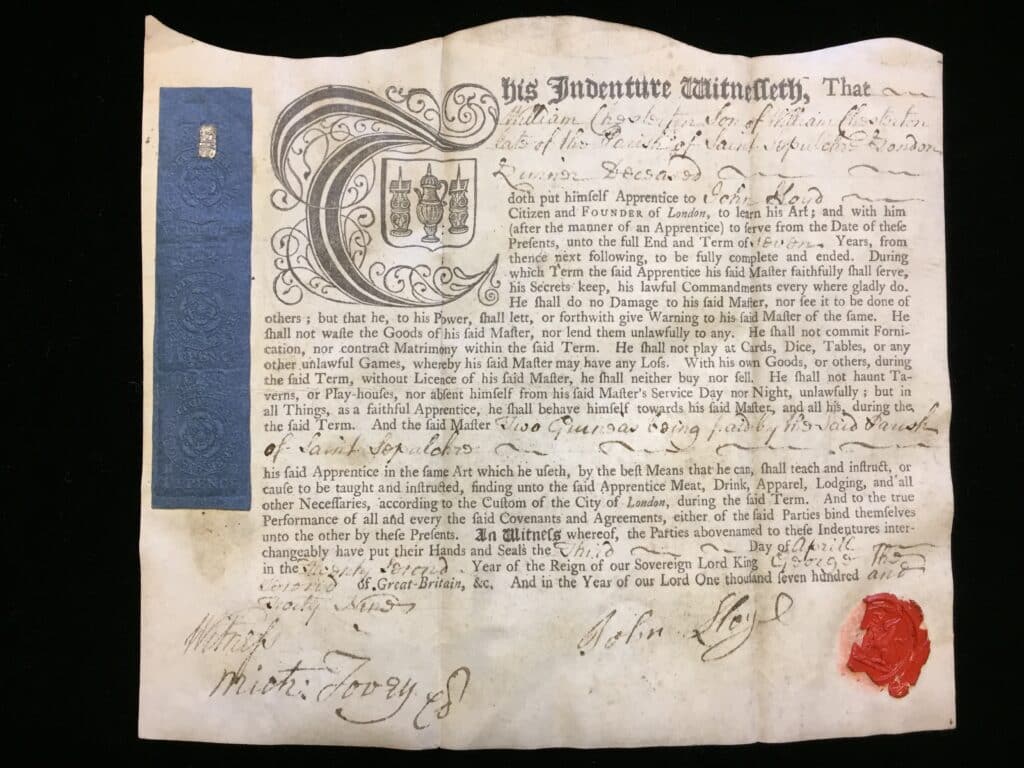 This Indenture Witnesseth, That
William Chesterton Son of William Chesterton
late of the Parish of Saint Sepulchre London
Deceased
doth put himself Apprentice to John Lloyd
Citizen and FOUNDER of London, to learn his Art; and with him
(after the manner of an Apprentice) to serve from the Date of these
Presents, unto the full End and Term of seven Years, from
thence next following, to be fully complete and ended. During
which Term the said Apprentice his said Master faithfully shall serve,
his Secrets keep, his lawful Commandments every where gladly do.
He shall do no Damage to his said Master, nor see it to be done of
others; but that he, to his Power, shall lett, or forthwith give Warning to his said Master of the same. He
shall not waste the Goods of his said Master, nor lend them unlawfully to any. He shall not commit Forni-
cation, nor contract Matrimony within the said Term. He shall not play at Cards, Dice, Tables, or any
other unlawful Games, whereby his said Master may have any Loss. With his own Goods, or others, during
the said Term, without Licence of his said Master, he shall neither buy nor sell. He shall not haunt Ta-
verns, or Play-houses, nor absent himself from his said Master's Service Day nor Night, unlawfully; but in
all Things, as a faithful Apprentice, he shall behave himself towards his said Master, and all his, during the
the said Term. And the said Master Two Guineas being paid by the said Parish
of Saint Sepulchre
his said Apprentice in the same Art which he useth, by the best Means that he can, shall teach and instruct, or
cause to be taught and instructed, finding unto the said Apprentice Meat, Drink, Apparel, Lodging, and all
other Necessaries, according to the Custom of the City of London, during the said Term. And to the true
Performance of all and every the said Covenants and Agreements, either of the said Parties bind themselves
unto the other by these Presents. In Witness whereof, the Parties abovenamed to these Indentures inter-
changeably have put their Hands and Seals the Third Day of Aprill
in the Twenty Second Year of the Reign of our Sovereign Lord King George The
Second of Great-Britain, &c. And in the Year of our Lord One thousand seven hundred and
Forty Nine
John Lloyd
Witness
Mich: Tovey
PENCE
PENCE